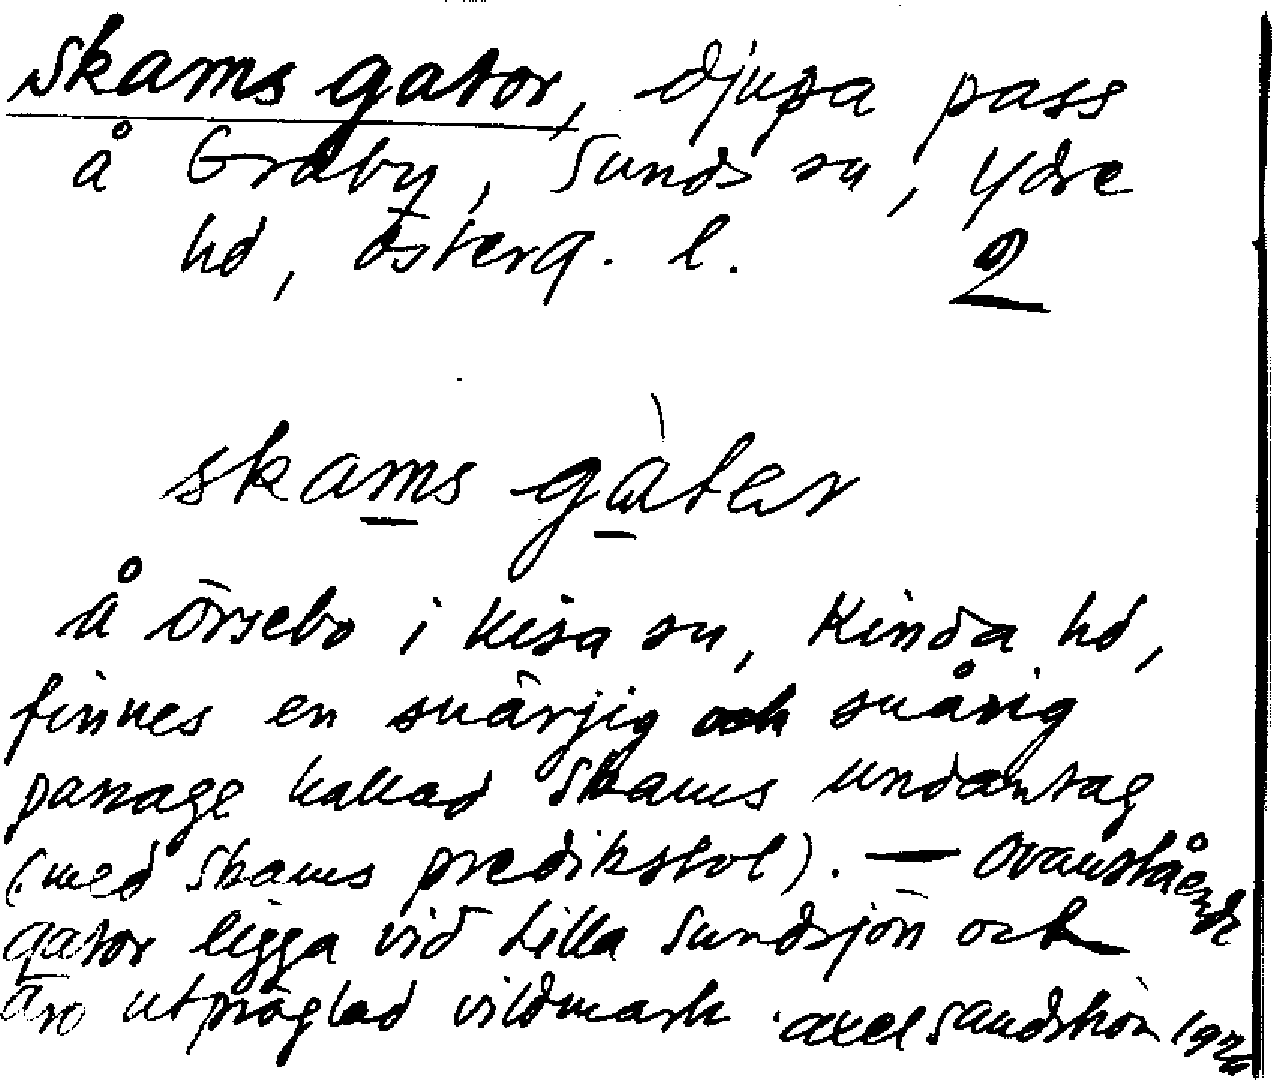 Skams gator, djupa pass
å Gråby, Sunds sn, Ydre
hd, Österg. l. 2
skams gàter
Å Örsebo i Kisa sn, Kinda hd,
finnes en snärjig och svårig
passage kallad Skams undantag
(med Skams predikstol). — Ovanstående
gator ligga vid Lilla Sundsjön och
äro utpräglad vildmark. Axel Sandström